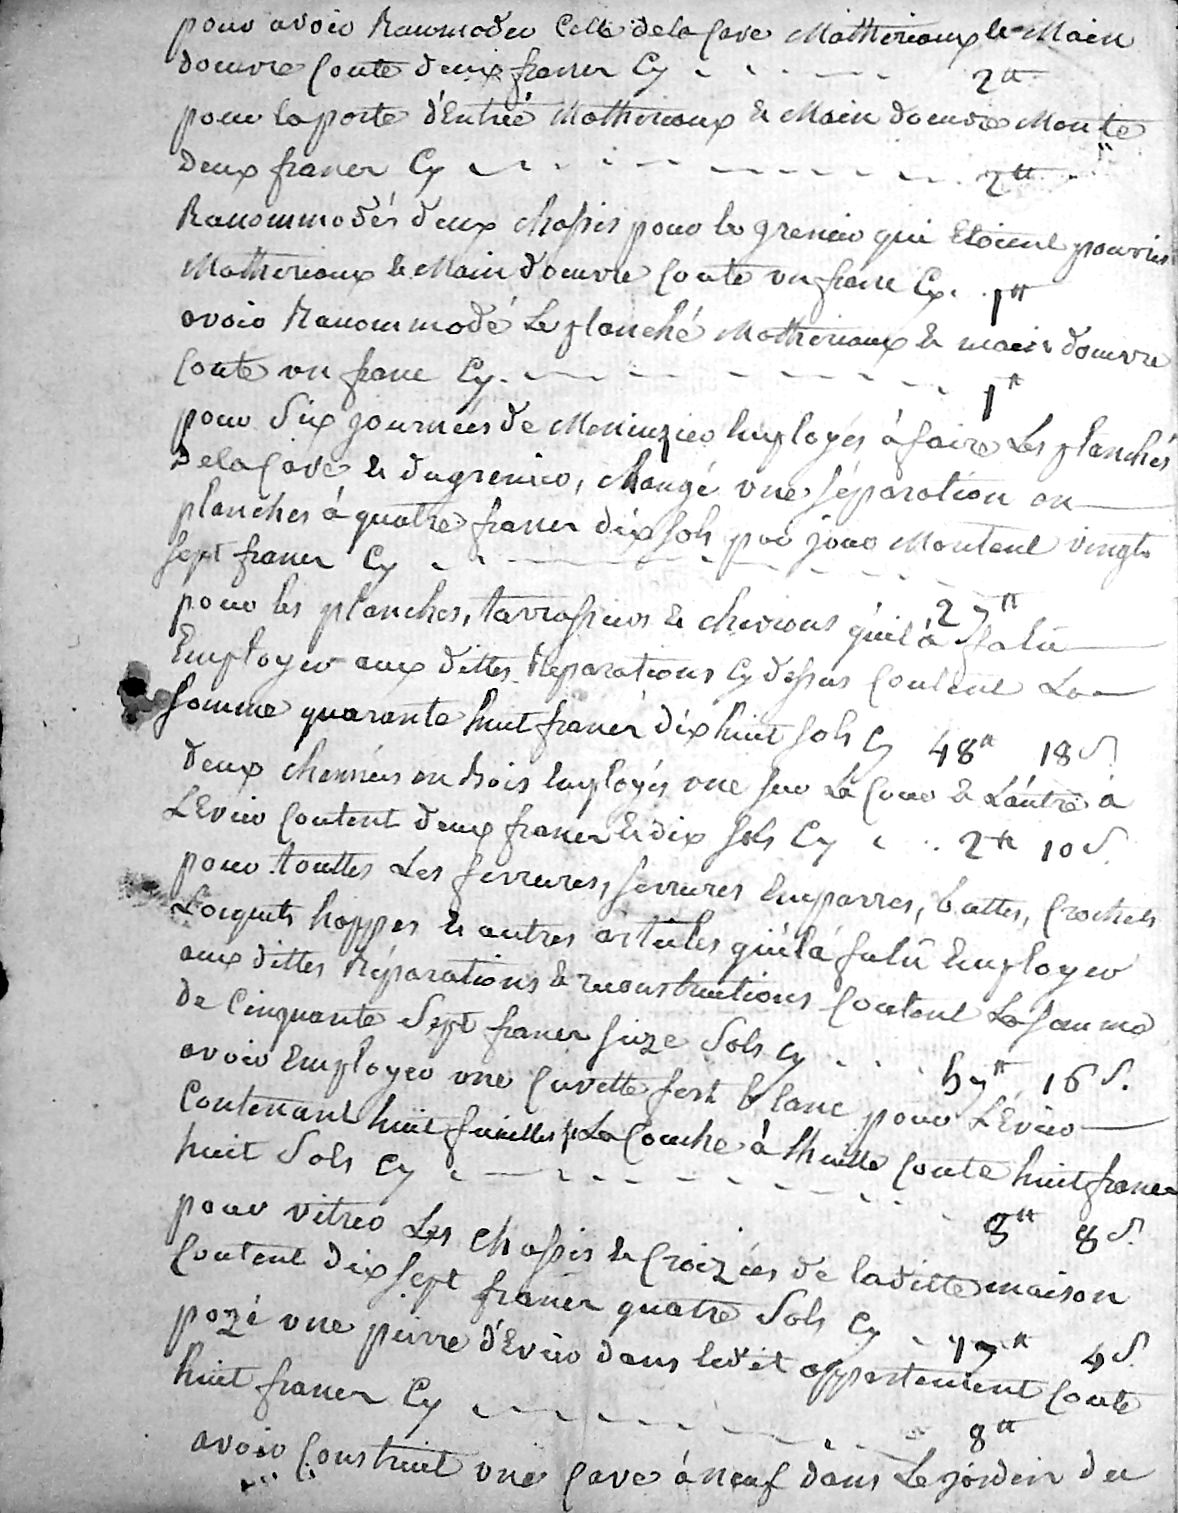 pour avoir Raumoder Celle dela Cave Matheriaux le Main
doeuvre Coute deux francs Cy 2tt
pour la porte d'Entrée Matheriaux & Main doeuvre Monte
Deux francs Cy 2tt
Racommodés deux chasis pour le grenier qui Etoient pourris
Matheriaux & Main doeuvre Coute un franc Cy. 1tt
avoir Racommodé Le planché Matheriaux & main doeuvre
Coute un franc Cy. 1tt
pour Six journées de Menuzier Employés à faire Les planchés
De la Cave & du grenier, changé une séparation en
planches à quatre francs dix sols par jour Montent vingt
sept francs Cy 27tt
pour les planches, tavrassiers & chevrons quil à falu
Employer aux dittes Reparations Cy dessus Coutent La
somme quarante huit francs dix huit sols Cy 48tt 18 S.
deux chennées en bois Employés une sur La Cour & Lautre à
LEvier Coutent deux francs & dix sols Cy 2tt 10 S.
pour touttes Les ferrures, serrures Emparres, battes, Crochets
Loquets happes & autres articles quil à falu Employer
aux dittes Réparations & reconstructions Coutent La somme
de Cinquante Sept francs seize Sols Cy 57tt 16 S.
avoir Employer une Cuvette fert blanc pour L'Evier
Contenant huit feuilles & La Couche à Lhuille Coute huit francs
huit Sols Cy 8tt 8 S.
pour vitrer Les chasis & Croizées de laditte maison
Coutent dix sept francs quatre Sols Cy 17tt 4 S.
pozé une pierre d'Evier dans ledit appartement Coute
huit francs Cy 8tt
avoir Construit une Cave à neuf dans Le jardin du